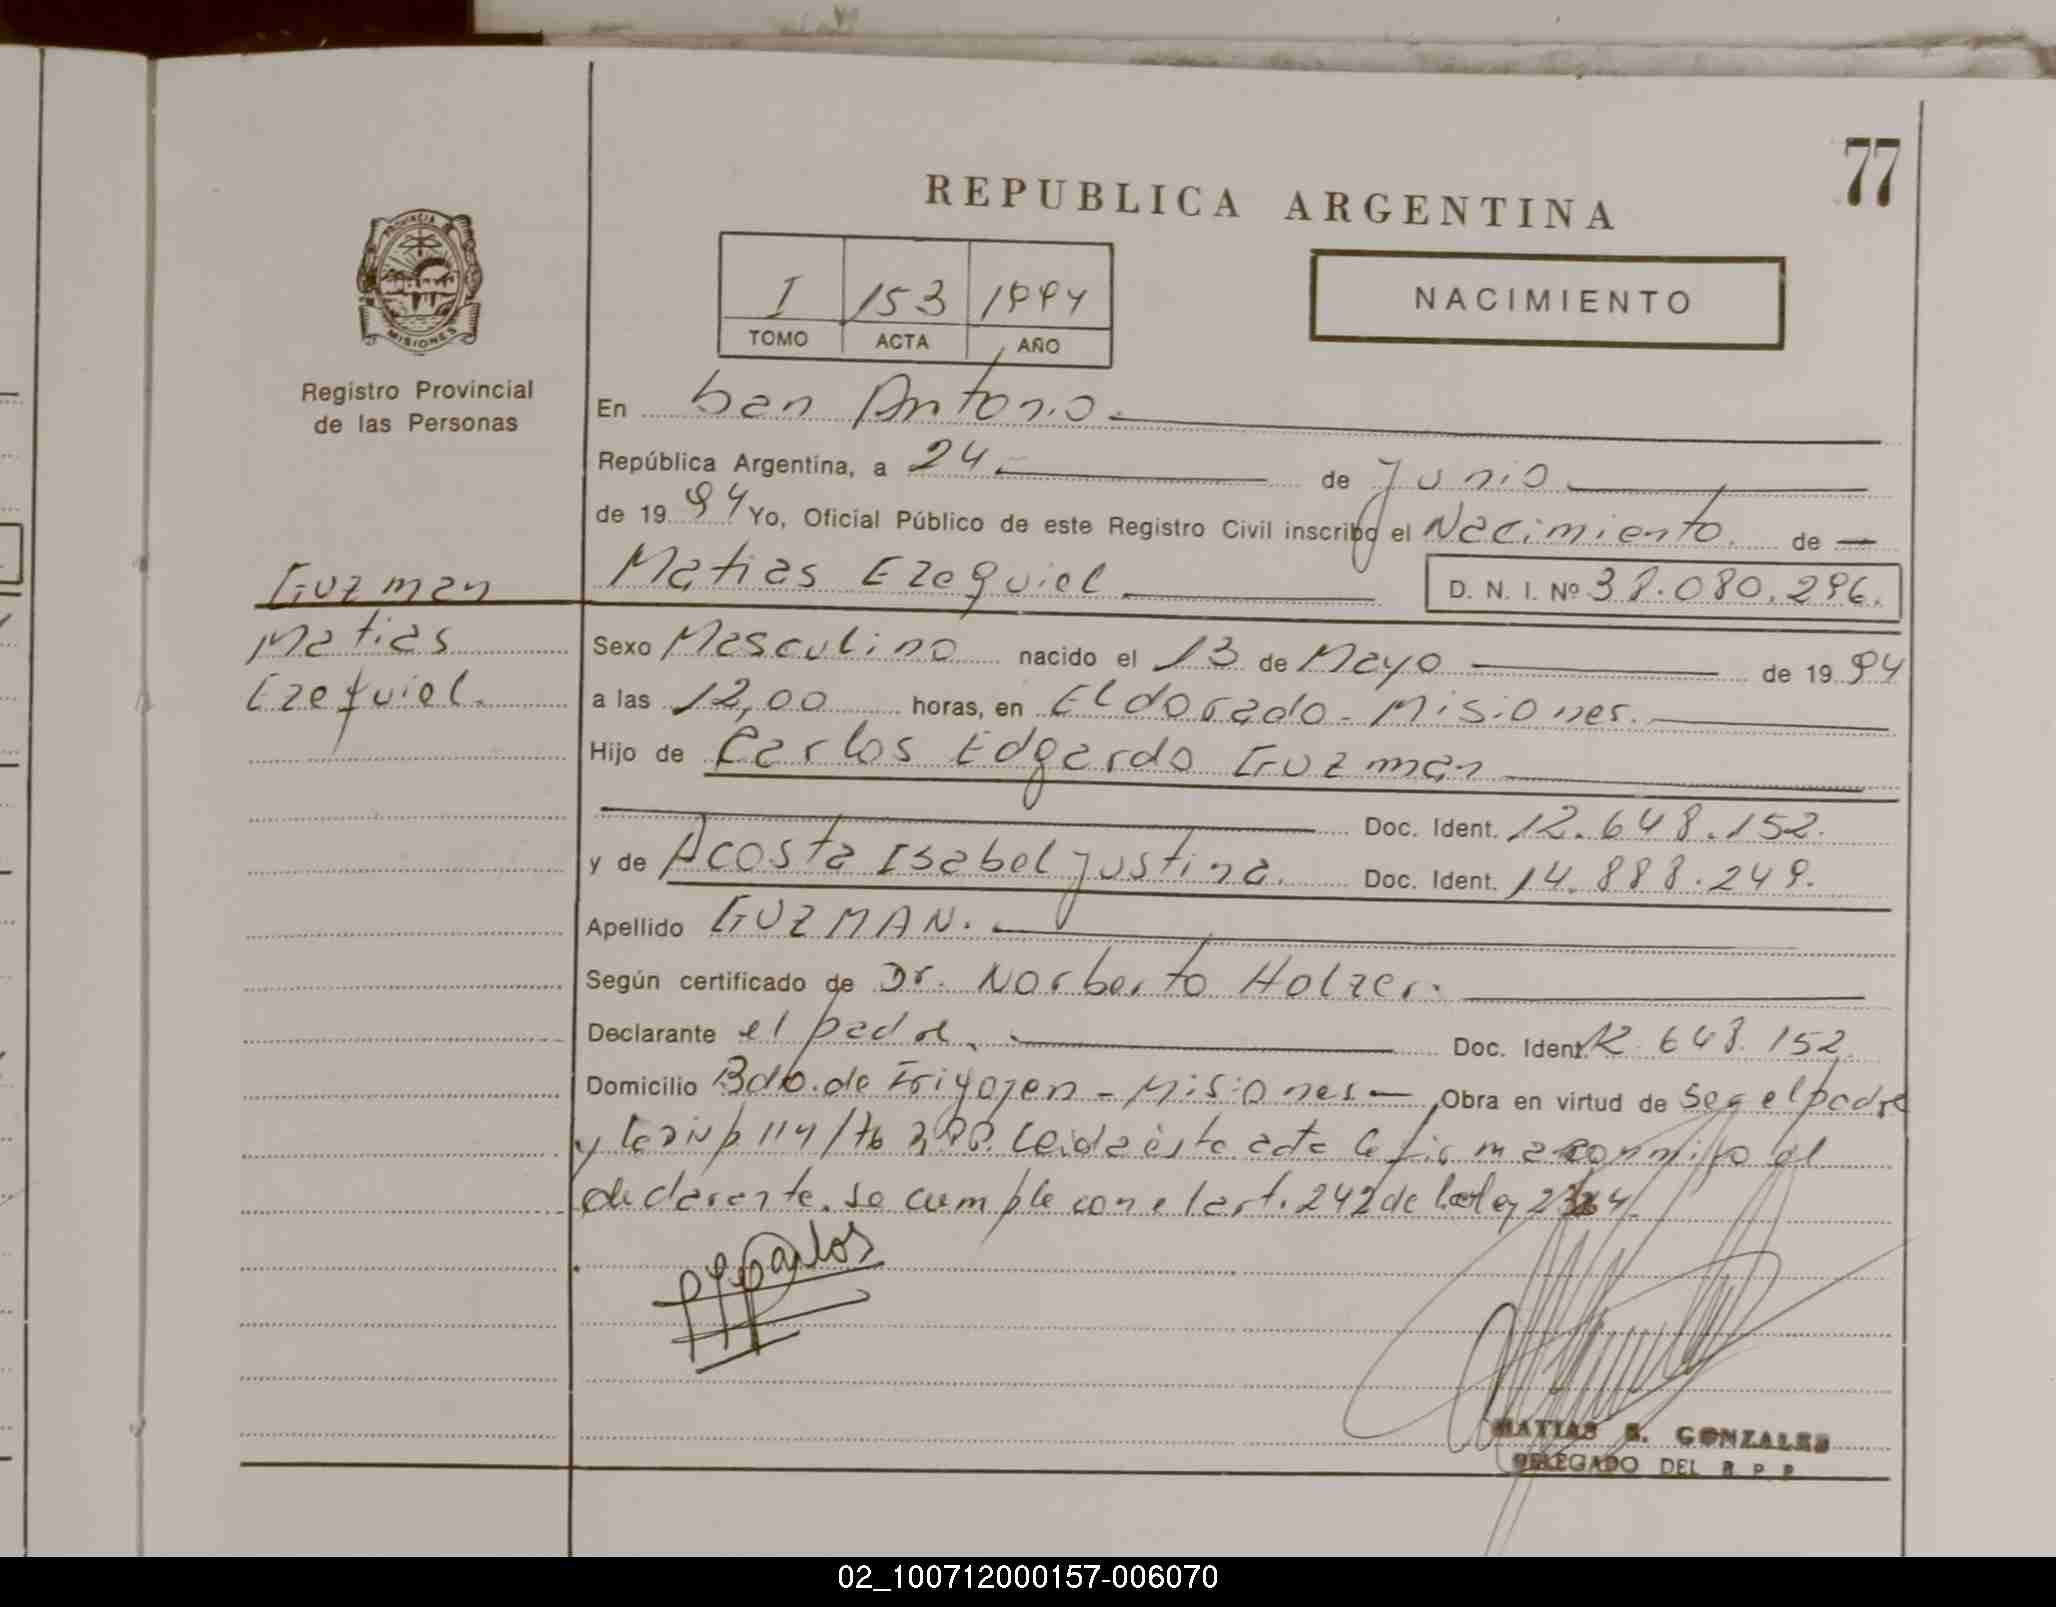 77
REPUBLICA ARGENTINA
PROVINCIA
MISIONES
Registro Provincial
de las Personas
I 153 1994
TOMO ACTA AÑO
NACIMIENTO
En San Antonio.
República Argentina, a 24 de Junio
de 19 94 Yo, Oficial Público de este Registro Civil inscribo el Nacimiento. de
Matias Ezequiel D. N. I. Nº 38.080.296.
Guzman
Matias
Ezequiel.
Sexo Masculino nacido el 13 de Mayo de 19 94
a las 12,00 horas, en Eldorado - Misiones.
Hijo de Carlos Edgardo Guzman
Doc. Ident. 12.648.152.
y de Acosta Isabel Justina. Doc. Ident. 14.888.249.
Apellido GUZMAN.
Según certificado de Dr. Norberto Holzer.
Declarante el padre. Doc. Ident. 12.648.152
Domicilio Bdo. de Irigoyen - Misiones - Obra en virtud de Ser el padre
y 114/76 Leida esta acta la firma conmigo el
declarante. Se cumple con el art. 242 de la ley
Carlos
MATIAS GONZALES
DELEGADO DEL R P P
02_100712000157-006070